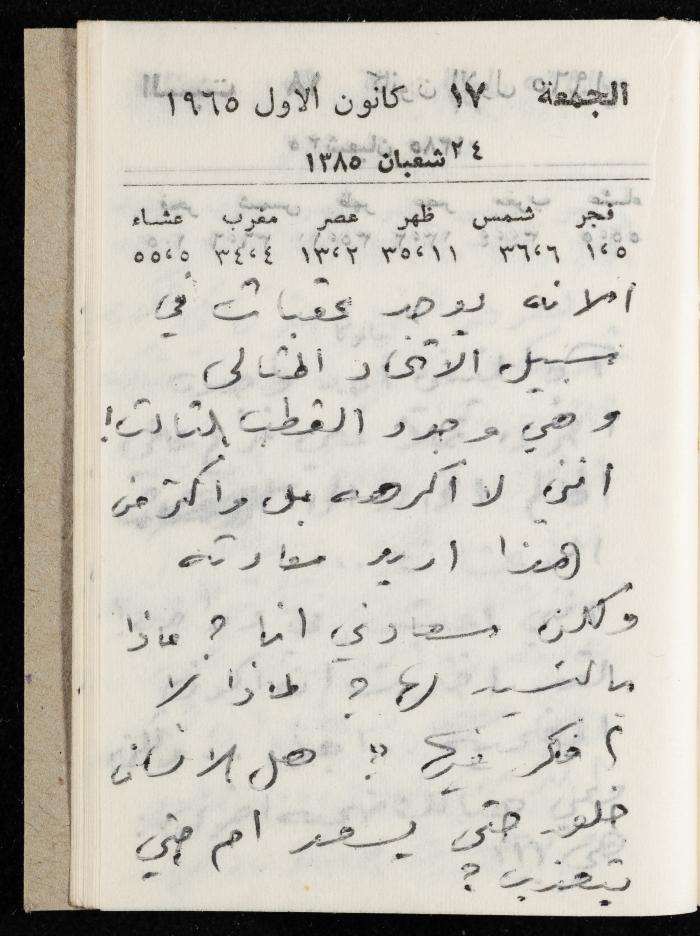 الجمعة ١٧ كانون الاول ١٩٦٥
٢٤ شعبان ١٣٨٥
فجر شمس ظهر عصر مغرب عشاء
١،٥ ٣٦،٦ ٣٥،١١ ١٣،٢ ٣٤،٤ ٥٥،٥
الا انه يوجد عقبات في
سبيل الاتحاد المثالي
وهي وجود القطب الثالث!
انني لا اكرهه بل واكثر من
هذا اريد سعادته
ولكن سعادتي انا ؟ ماذا
بالنسبة لها ؟ لماذا لا
افكر فيها ؟ هل الانسان
خلق حتى يسعد ام حتى
يتعذب ؟